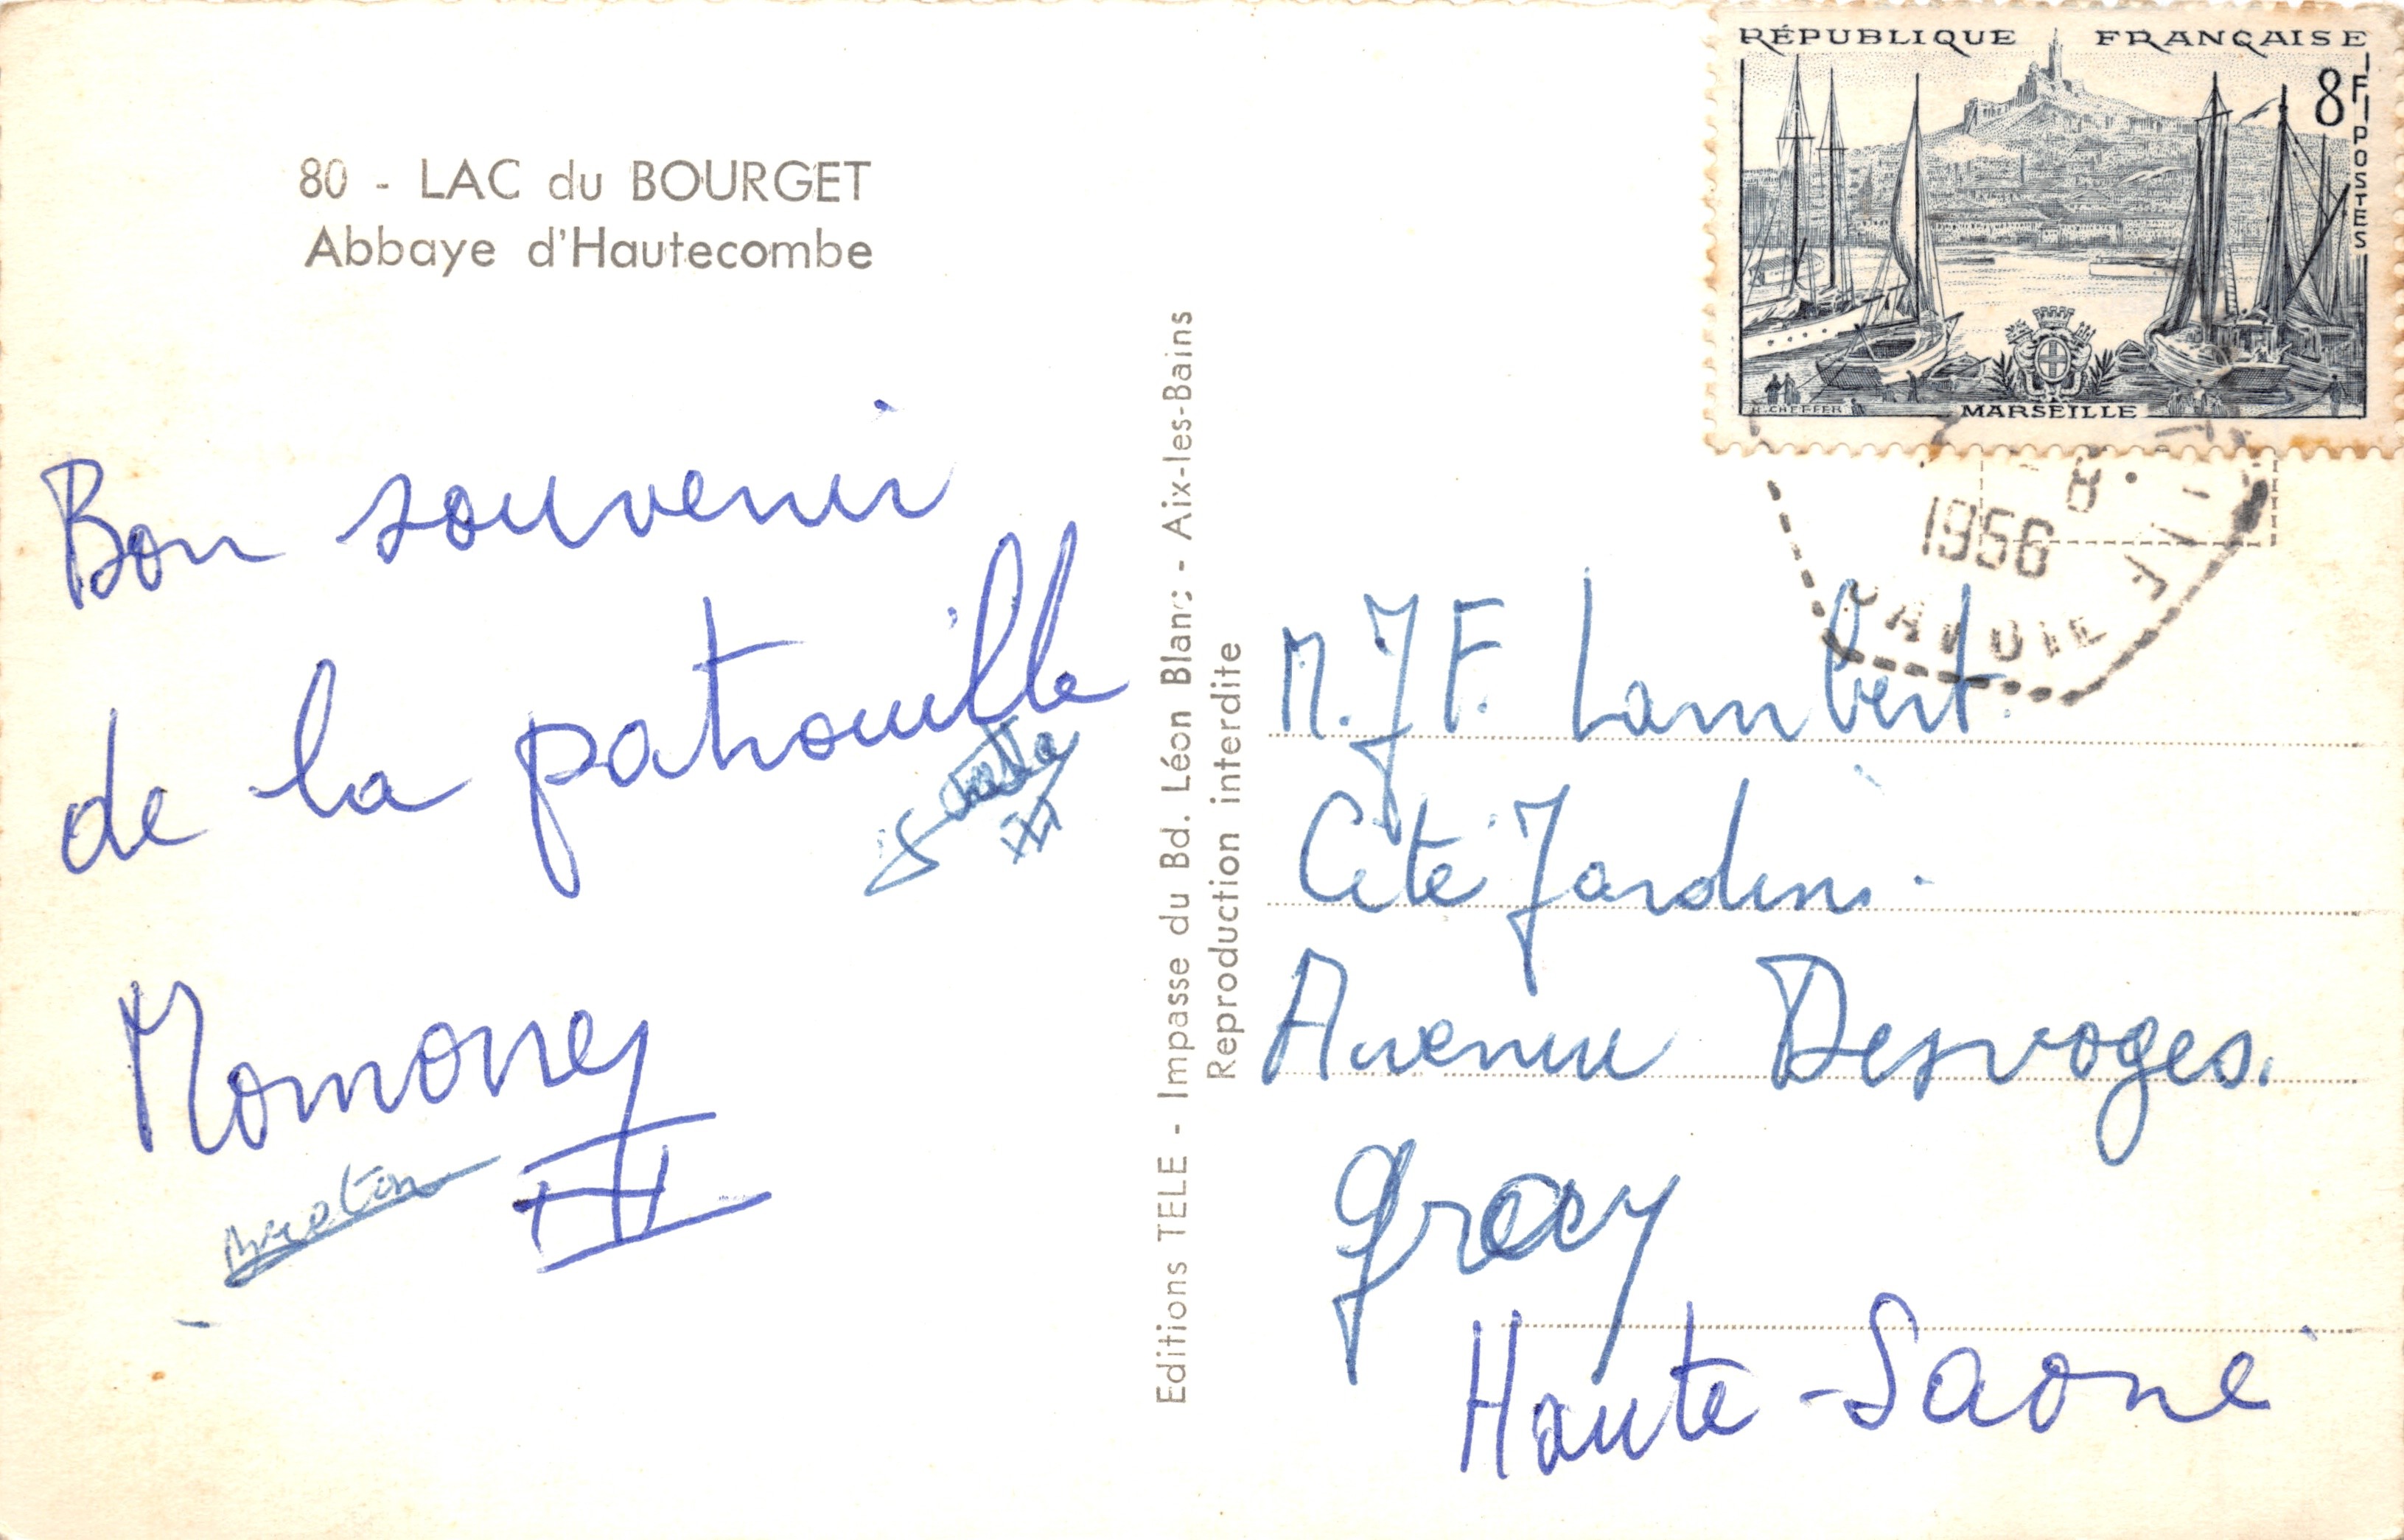 80 - LAC du BOURGET
Abbaye d'Hautecombe
Bon souvenir
de la patrouille
Editions TELE - Impasse du Bd. Léon Blanc - Aix-les-Bains
Reproduction interdite
RÉPUBLIQUE FRANÇAISE
8F
POSTES
H. CHEFFER
MARSEILLE
8
1956
SAVOIE
M. J F. Lambert.
Cité Jardins.
Avenue Desvoges.
Gray
Haute-Saone